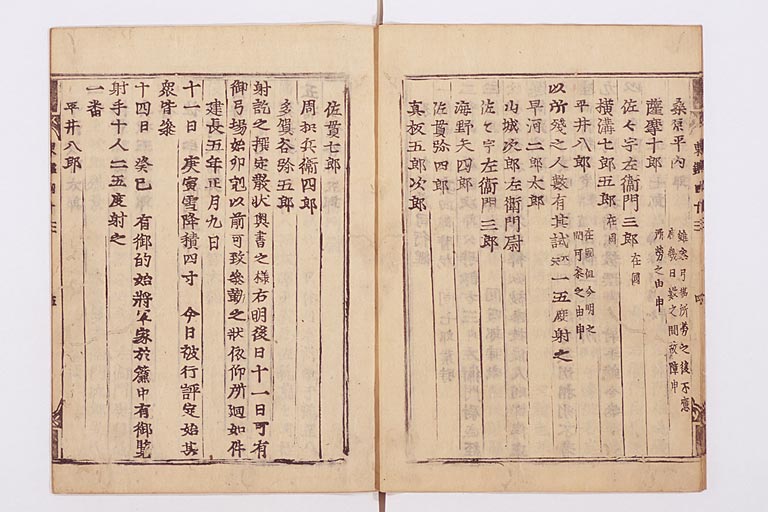 桑原平内
薩摩十郎 所労之由申
佐々宇左衛門三郎 在国
横溝七郎五郎 在国
平井八郎 在国但今明之
間可参之由申
以所残之人数有其試 一五度射之
早河二郎太郎
山城次郎左衛門尉
佐々宇左衛門三郎
海野矢四郎
佐貫弥四郎
真板五郎次郎
佐貫七郎
周枳兵衛四郎
多賀谷弥五郎
射訖之撰定散状奥書之様右明後日十一日可有
御弓場始卯剋以前可致参勤之状依仰所廻如件
建長五年正月九日
十一日 庚寅雪降積四寸 今日被行評定始其
衆皆参
十四日 癸巳 有御的始将軍家於簾中有御覧
射手十人二五度射之
一番
平井八郎